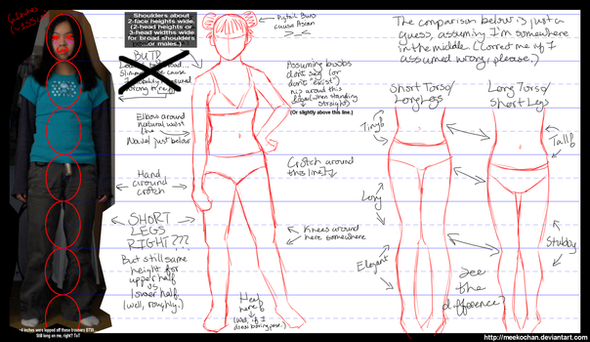 Shoulders about
2-face heights wide.
(2-head heights or
3-head widths wide
for broad shoulders
...or males.)
BUTD
Pigtail Buns
cause Asian
Assuming boobs
don't sag (or
don't "exist")
nip around this
line (when standing
straight)
(Or slightly above this line.)
Elbow around
natural waist
line
Navel just below
Hand
around
crotch
Crotch around
this line
SHORT
LEGS
RIGHT???
But still same
height for
upper half
vs.
lower half.
(well, roughly.)
Knees around
here somewhere
Heel
here!
(Well, if I
drew
The comparison below is just a
guess, assuming I'm somewhere
in the middle. (Correct me if I
assumed wrong, please.)
Short Torso/
Long Legs
Long Torso/
Short Legs
Tiny!
Tall!
Long
Elegant
Stubby
See
the
difference?
~4 inches were lopped off those trousers BTW.
Still long on me, right? TwT
http://meekochan.deviantart.com